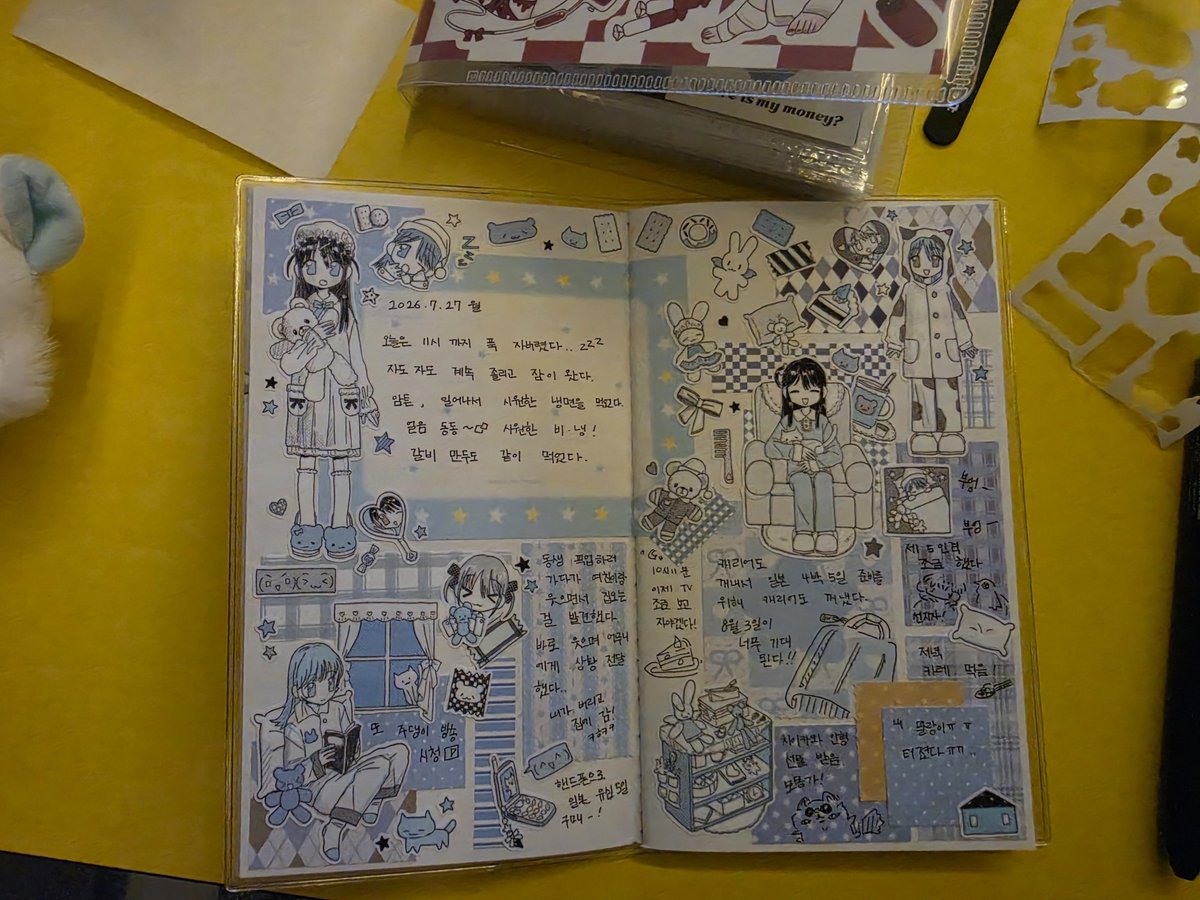 is my money?
2026.7.27 월
오늘은 11시 까지 푹 자버렸다.. zzz
자도 자도 계속 졸리고 잠이 왔다.
암튼, 일어나서 시원한 냉면을 먹었다.
얼음 동동~ 시원한 비·냉!
갈비 만두도 같이 먹었다.
동생 픽업하러
가다가 여친이랑
웃으면서 집오는
걸 발견했다.
바로 웃으며 어머니
에게 상황 전달
했다..
내가 버리고
집이 감!
ㅋㅋㅋ
또 주댕이 방송
시청
핸드폰으로
일본 유심 5일
구매-!
10시 11분
이제 TV
조금 보고
자야겠다!
캐리어도
꺼내서 일본 4박 5일 준비를
위해 캐리어도 꺼냈다.
8월 3일이
너무 기대
된다!!
부엉
부엉
제 5인격
조금 했다
선지자!
저녁
카레 먹음!
치이카와 인형
선물 받음
보물가!
내 말랑이ㅠㅠ
터졌다ㅠㅠ..